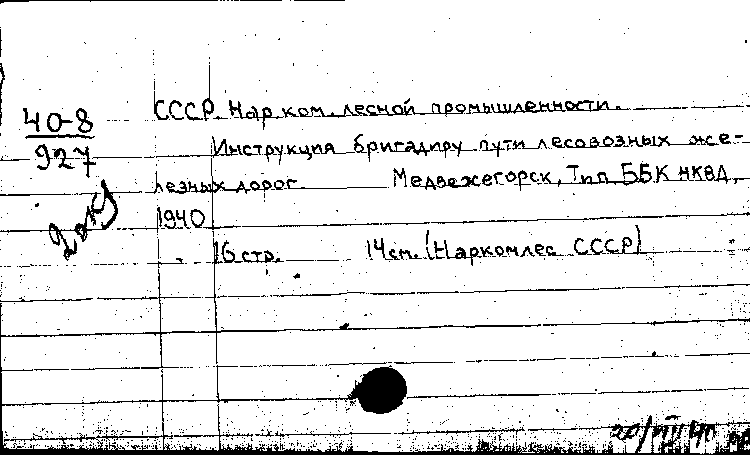 40-8
927
2 экз
СССР. Нар. ком. лесной промышленности.
Инструкция бригадиру пути лесовозных же-
лезных дорог. Медвежегорск, Тип ББК НКВД,
1940
16 стр. 14 см. (Наркомлес СССР)
20/VIII 40